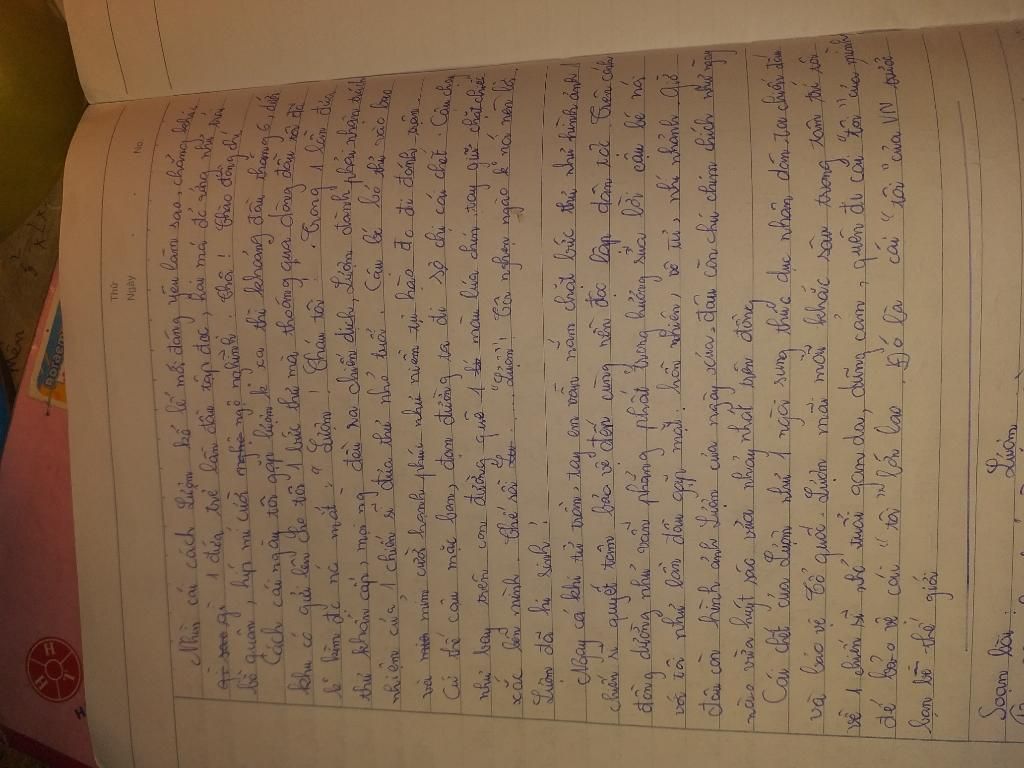 Thứ
Ngày No.
Nhìn cái cách Lượm kể lể mới đáng yêu làm sao chẳng khác
gì 1 đứa trẻ lần đầu tập đọc, hai má đỏ ửng như trái
bồ quân, híp mí cười ngộ nghĩnh. Thôi! Chào đồng chí
Cách cái ngày tôi gặp Lượm k xa thì khoảng đầu tháng 6, đồng
khu có gửi lên cho tôi 1 bức thư mà thông qua dòng đầu tôi đã
bị hẫm đi nó mất: " Lượm! Cháu tôi!. Trong 1 lần đưa
thư khẩn cấp, mạng đầu ra chiến dịch, Lượm dành phần
nhiệm của 1 chiến sĩ đưa thư nhỏ tuổi. Cậu bé bỏ thư vào bao
và mỉm cười hạnh phúc như niềm tự hào đc đi đánh trận
Cứ thế cậu mặc bom, đạn đường ta đi sợ chi cái chết. Cậu chạy
như bay trên con đường quê 1 màu lúa chín, tay giữ chặt chiếc
xắc bên mình. Thế rồi ... "Lượm"! Tôi nghẹn ngào k nói nên lời
Lượm đã hi sinh!
Ngay cả khi từ trần tay em vẫn nắm chặt bức thư như hình ảnh 1
chiến sĩ quyết tâm bảo vệ đến cùng nền độc lập dân tộc. Trên cánh
đồng dường như vẫn phảng phất hương sữa bởi cậu bé nói
với tôi như lần đầu gặp mặt: hồn nhiên, vô tư, nhí nhảnh. Giờ
đâu còn hình ảnh Lượm của ngày xưa. đâu còn chú chim chích nhảy này
nào vừa huýt sáo vừa nhảy nhót trên đồng
Cái chết của Lượm như 1 ngòi súng thúc dục nhân dân ra chiến đấu
và bảo vệ Tổ quốc. Lượm mãi mãi khắc sâu trong tâm trí tôi
về 1 chiến sĩ nhỏ tuổi gan dạ, dũng cảm, quên đi cái "tôi" của mình
để bảo vệ cái "tôi" lớn lao. Đó là cái "tôi" của VN dưới
bạn bè thế giới
Soạn bài: Lượm